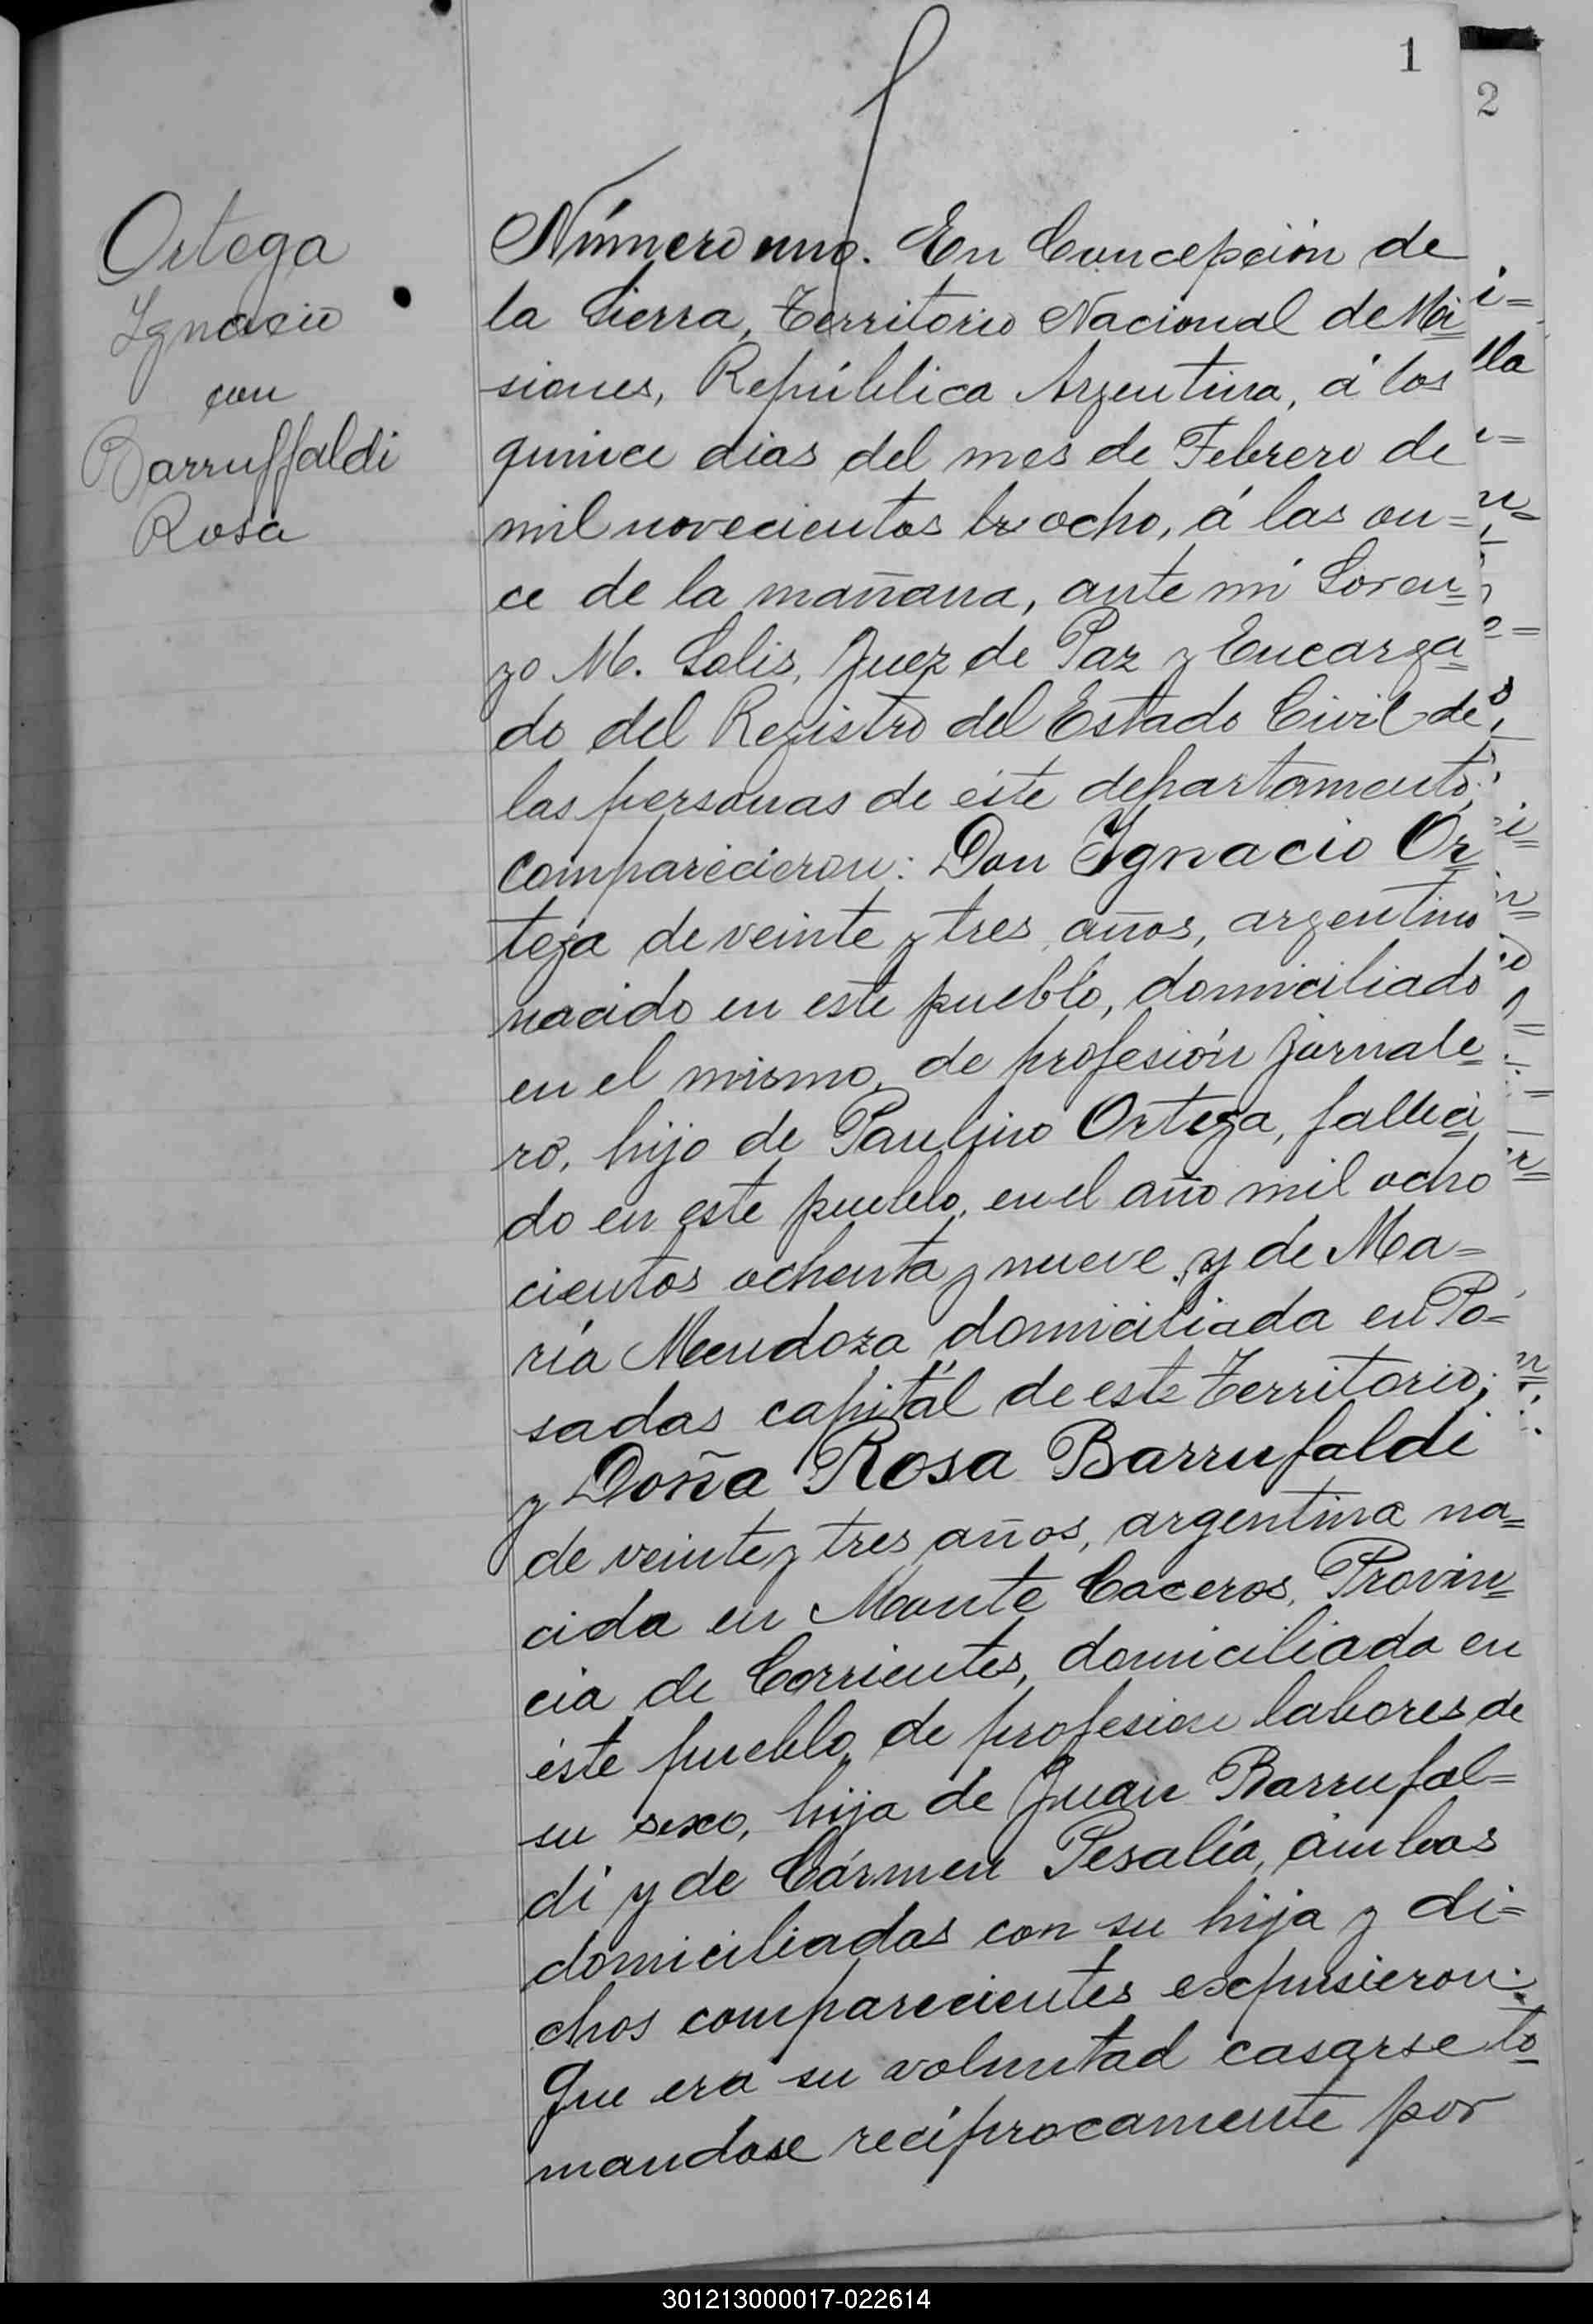 1
2
Ortega
Ignacio
con
Barruffaldi
Rosa
Número uno. En Concepción de
la Sierra, Territorio Nacional de Mi=
siones, República Argentina, á los
quince dias del mes de Febrero de
mil novecientos ocho, á las on=
ce de la mañana, ante mi Loren=
zo M. Solis, Juez de Paz y Encarga=
do del Registro del Estado Civil de
las personas de este departamento,
comparecieron: Don Ignacio Or=
tega de veinte y tres años, argentino
nacido en este pueblo, domiciliado
en el mismo, de profesión jornale=
ro, hijo de Paulino Ortega, falleci=
do en este pueblo, en el año mil ocho
cientos ochenta y nueve y de Ma=
ría Mendoza domiciliada en Po=
sadas capital de este Territorio;
y Doña Rosa Barrufaldi
de veinte y tres años, argentina na=
cida en Monte Caceros, Provin=
cia de Corrientes, domiciliada en
éste pueblo, de profesion labores de
su sexo, hija de Juan Barrufal=
di y de Cármen Pesalía, ámbos
domiciliados con su hija y di=
chos comparecientes expusieron:
Que era su voluntad casarse to=
mandose recíprocamente por
301213000017-022614